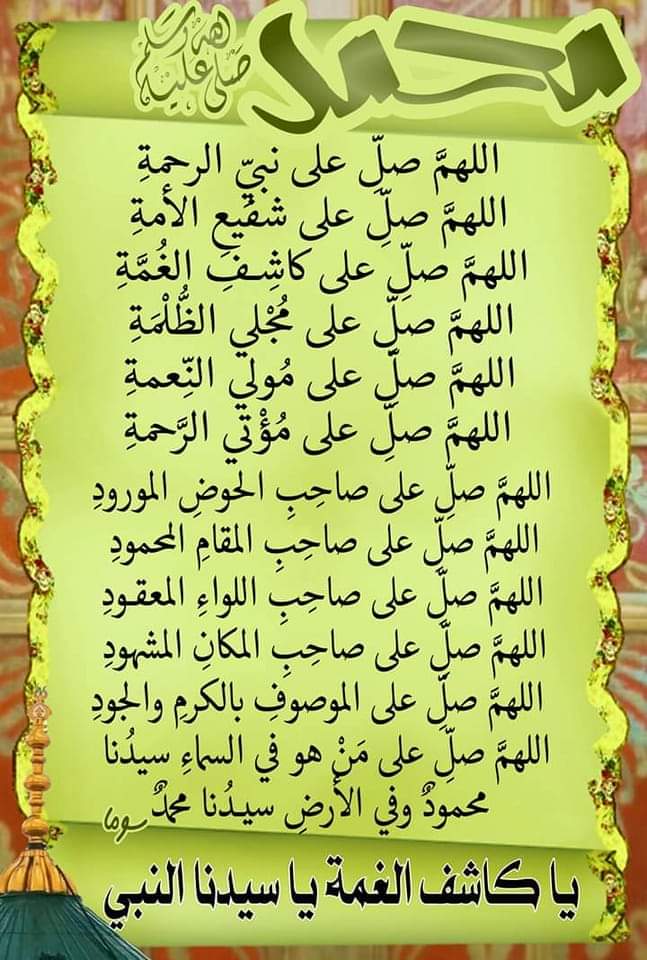 محمد صلى الله عليه وسلم
اللهمَّ صلِّ على نبيِّ الرحمةِ
اللهمَّ صلِّ على شفيعِ الأمةِ
اللهمَّ صلِّ على كاشِفِ الغُمَّةِ
اللهمَّ صلِّ على مُجْلي الظُّلْمَةِ
اللهمَّ صلِّ على مُولي النِّعمةِ
اللهمَّ صلِّ على مُؤْتي الرَّحمةِ
اللهمَّ صلِّ على صاحِبِ الحوضِ المورودِ
اللهمَّ صلِّ على صاحِبِ المقامِ المحمودِ
اللهمَّ صلِّ على صاحِبِ اللواءِ المعقودِ
اللهمَّ صلِّ على صاحِبِ المكانِ المشهودِ
اللهمَّ صلِّ على الموصوفِ بالكرمِ والجودِ
اللهمَّ صلِّ على مَنْ هو في السماءِ سيدُنا
محمودٌ وفي الأرضِ سيدُنا محمدٌ
يا كاشف الغمة يا سيدنا النبي